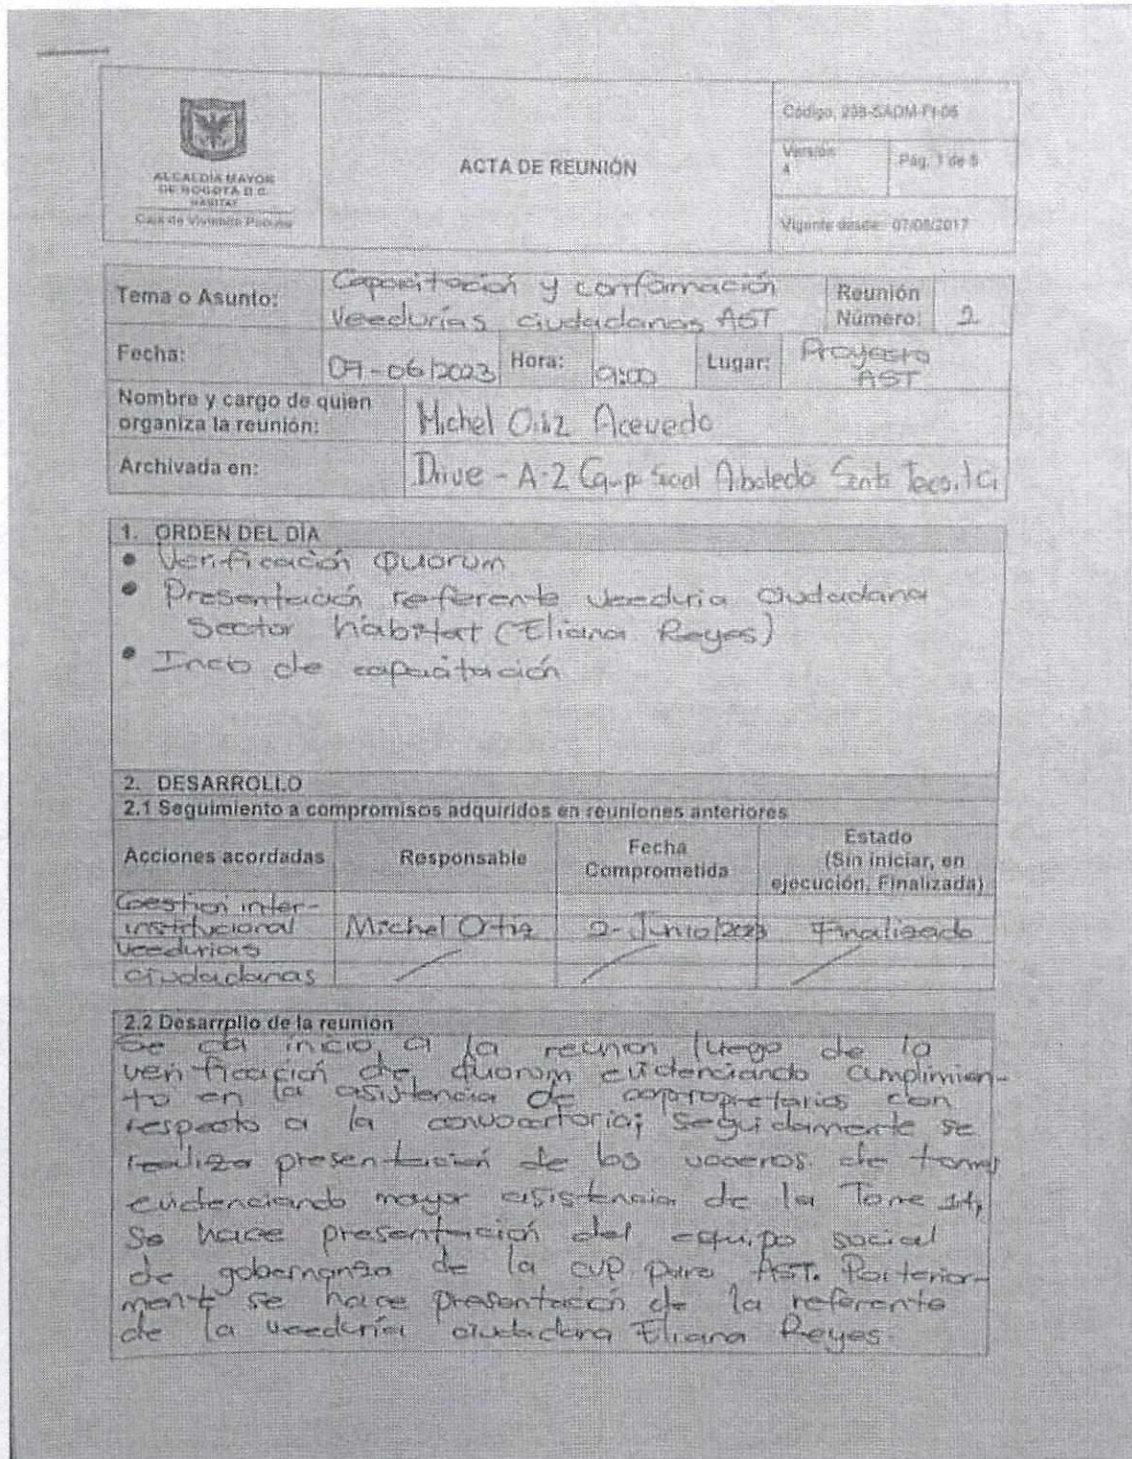 ALCALDÍA MAYOR
DE BOGOTÁ D.C.
HÁBITAT
Caja de Vivienda Popular
ACTA DE REUNIÓN
Código: 208-SADM-Ft-05
Versión
4
Pág. 1 de 5
Vigente desde: 07/05/2017
Tema o Asunto:
Capacitación y conformación
Veedurías ciudadanas AST
Reunión
Número:
2
Fecha:
07-06/2023
Hora:
9:00
Lugar:
Proyecto
AST
Nombre y cargo de quien
organiza la reunión:
Michel Ortiz Acevedo
Archivada en:
Drive - A-2 Social Santa
1. ORDEN DEL DÍA
• Verificación Quorum
• Presentación referente veeduria Ciudadana
Sector habitat (Eliana Reyes)
• Incio de capacitación
2. DESARROLLO
2.1 Seguimiento a compromisos adquiridos en reuniones anteriores
Acciones acordadas
Responsable
Fecha
Comprometida
Estado
(Sin iniciar, en
ejecución, Finalizada)
Gestion inter-
institucional
veedurias
ciudadanas
Michel Ortiz
2-Junio/2023
Finalizado
2.2 Desarrollo de la reunión
Se da inicio a la reunion luego de la
verificación de quorum evidenciando cumplimien-
to en la asistencia de copropietarios con
respecto a la convocatoria; seguidamente se
realiza presentación de los voceros de torres
evidenciando mayor asistencia de la Torre 14,
Se hace presentación del equipo social
de gobernanza de la CVP para AST. Posterior-
mente se hace presentación de la referente
de la veeduría ciudadana Eliana Reyes.